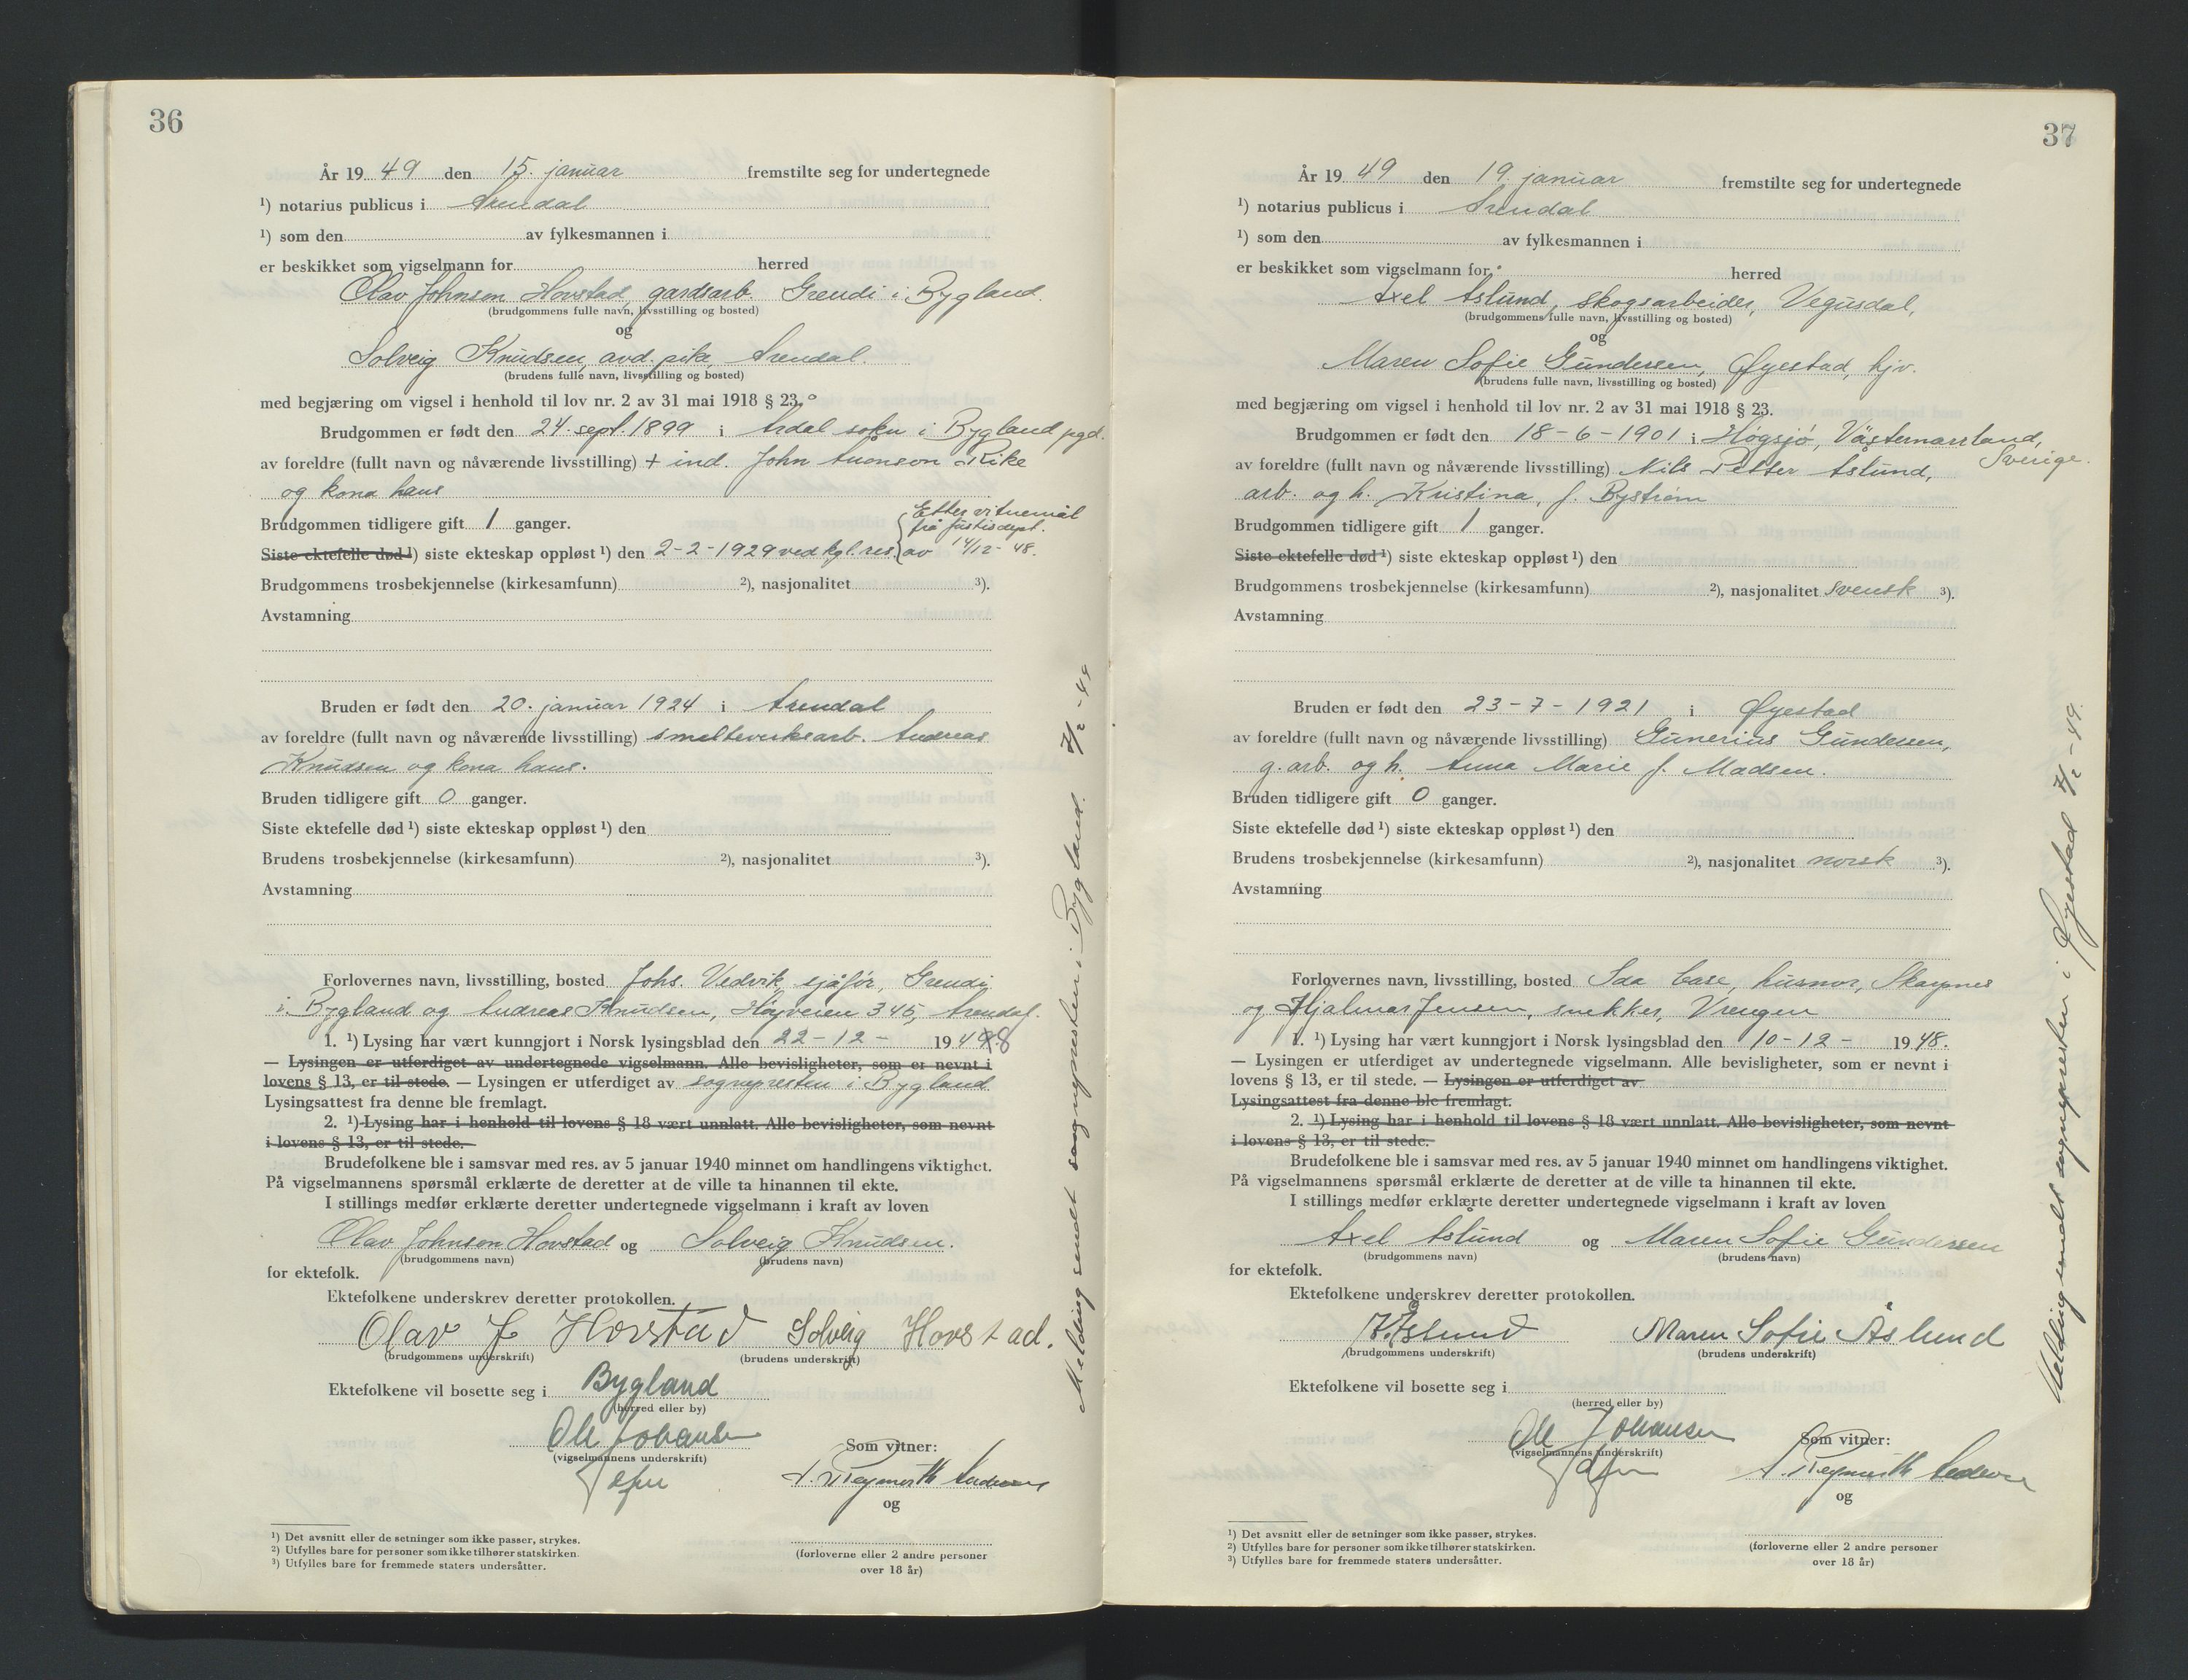 36
År 19 49 den 15. januar fremstilte seg for undertegnede
¹) notarius publicus i Arendal
¹) som den av fylkesmannen i
er beskikket som vigselmann for herred
Olav Johnsen Hovstad, gardsarb. Grendi i Bygland.
(brudgommens fulle navn, livsstilling og bosted)
og
Solveig Knudsen, avd. pike, Arendal.
(brudens fulle navn, livsstilling og bosted)
med begjæring om vigsel i henhold til lov nr. 2 av 31 mai 1918 § 23.
Brudgommen er født den 24. sept. 1899 i Årdal sokn i Bygland pgd.
av foreldre (fullt navn og nåværende livsstilling) + ind. John Auonson Rike
og kona hans
Brudgommen tidligere gift 1 ganger.
Etter vitnemål
frå justisdept.
Siste ektefelle død ¹) siste ekteskap oppløst ¹) den 2-2-1929 ved kgl. res. av 14/12-48.
Brudgommens trosbekjennelse (kirkesamfunn) ²), nasjonalitet ³).
Avstamning
Bruden er født den 20. januar 1924 i Arendal
av foreldre (fullt navn og nåværende livsstilling) smelteverksarb. Andreas
Knudsen og kona hans.
Bruden tidligere gift 0 ganger.
Siste ektefelle død ¹) siste ekteskap oppløst ¹) den
Brudens trosbekjennelse (kirkesamfunn) ²), nasjonalitet ³).
Avstamning
Forlovernes navn, livsstilling, bosted Johs. Vedvik, sjåfør, Grendi
i Bygland og Andreas Knudsen, Høyveien 345, Arendal.
1. ¹) Lysing har vært kunngjort i Norsk lysingsblad den 22-12- 19 48
— Lysingen er utferdiget av undertegnede vigselmann. Alle bevisligheter, som er nevnt i
lovens § 13, er til stede. — Lysingen er utferdiget av sognepresten i Bygland
Lysingsattest fra denne ble fremlagt.
2. ¹) Lysing har i henhold til lovens § 18 vært unnlatt. Alle bevisligheter, som nevnt
i lovens § 13, er til stede.
Brudefolkene ble i samsvar med res. av 5 januar 1940 minnet om handlingens viktighet.
På vigselmannens spørsmål erklærte de deretter at de ville ta hinannen til ekte.
I stillings medfør erklærte deretter undertegnede vigselmann i kraft av loven
Olav Johnsen Hovstad og Solveig Knudsen.
(brudgommens navn) (brudens navn)
for ektefolk.
Ektefolkene underskrev deretter protokollen.
Olav J Hovstad Solveig Hovstad.
(brudgommens underskrift) (brudens underskrift)
Ektefolkene vil bosette seg i Bygland
(herred eller by)
Ole Johansen
(vigselmannens underskrift)
Som vitner:
og
(forloverne eller 2 andre personer
over 18 år)
¹) Det avsnitt eller de setninger som ikke passer, strykes.
²) Utfylles bare for personer som ikke tilhører statskirken.
³) Utfylles bare for fremmede staters undersåtter.
Melding sendt sognepresten i Bygland. 7/2-49
37
År 19 49 den 19. januar fremstilte seg for undertegnede
¹) notarius publicus i Arendal
¹) som den av fylkesmannen i
er beskikket som vigselmann for herred
Axel Åslund, skogsarbeider, Vegusdal,
(brudgommens fulle navn, livsstilling og bosted)
og
Maren Sofie Gundersen, Øyestad, hjv.
(brudens fulle navn, livsstilling og bosted)
med begjæring om vigsel i henhold til lov nr. 2 av 31 mai 1918 § 23.
Brudgommen er født den 18-6-1901 i Högsjö, Västernorrland,
Sverige.
av foreldre (fullt navn og nåværende livsstilling) Nils Petter Åslund,
arb. og h. Kristina, f. Byström
Brudgommen tidligere gift 1 ganger.
Siste ektefelle død ¹) siste ekteskap oppløst ¹) den
Brudgommens trosbekjennelse (kirkesamfunn) ²), nasjonalitet svensk ³).
Avstamning
Bruden er født den 23-7-1921 i Øyestad
av foreldre (fullt navn og nåværende livsstilling) Gunerius Gundersen,
g. arb. og h. Anna Marie f. Madsen.
Bruden tidligere gift 0 ganger.
Siste ektefelle død ¹) siste ekteskap oppløst ¹) den
Brudens trosbekjennelse (kirkesamfunn) ²), nasjonalitet norsk ³).
Avstamning
Forlovernes navn, livsstilling, bosted husmor, Skarpnes
og Hjalmar Jensen, snekker, Vrengen
1. ¹) Lysing har vært kunngjort i Norsk lysingsblad den 10-12- 19 48.
— Lysingen er utferdiget av undertegnede vigselmann. Alle bevisligheter, som er nevnt i
lovens § 13, er til stede. — Lysingen er utferdiget av
Lysingsattest fra denne ble fremlagt.
2. ¹) Lysing har i henhold til lovens § 18 vært unnlatt. Alle bevisligheter, som nevnt
i lovens § 13, er til stede.
Brudefolkene ble i samsvar med res. av 5 januar 1940 minnet om handlingens viktighet.
På vigselmannens spørsmål erklærte de deretter at de ville ta hinannen til ekte.
I stillings medfør erklærte deretter undertegnede vigselmann i kraft av loven
Axel Åslund og Maren Sofie Gundersen
(brudgommens navn) (brudens navn)
for ektefolk.
Ektefolkene underskrev deretter protokollen.
Åslund Maren Sofie Åslund
(brudgommens underskrift) (brudens underskrift)
Ektefolkene vil bosette seg i
(herred eller by)
Ole Johansen
(vigselmannens underskrift)
Som vitner:
og
(forloverne eller 2 andre personer
over 18 år)
¹) Det avsnitt eller de setninger som ikke passer, strykes.
²) Utfylles bare for personer som ikke tilhører statskirken.
³) Utfylles bare for fremmede staters undersåtter.
Melding sendt sognepresten i Øyestad 7/2-49.